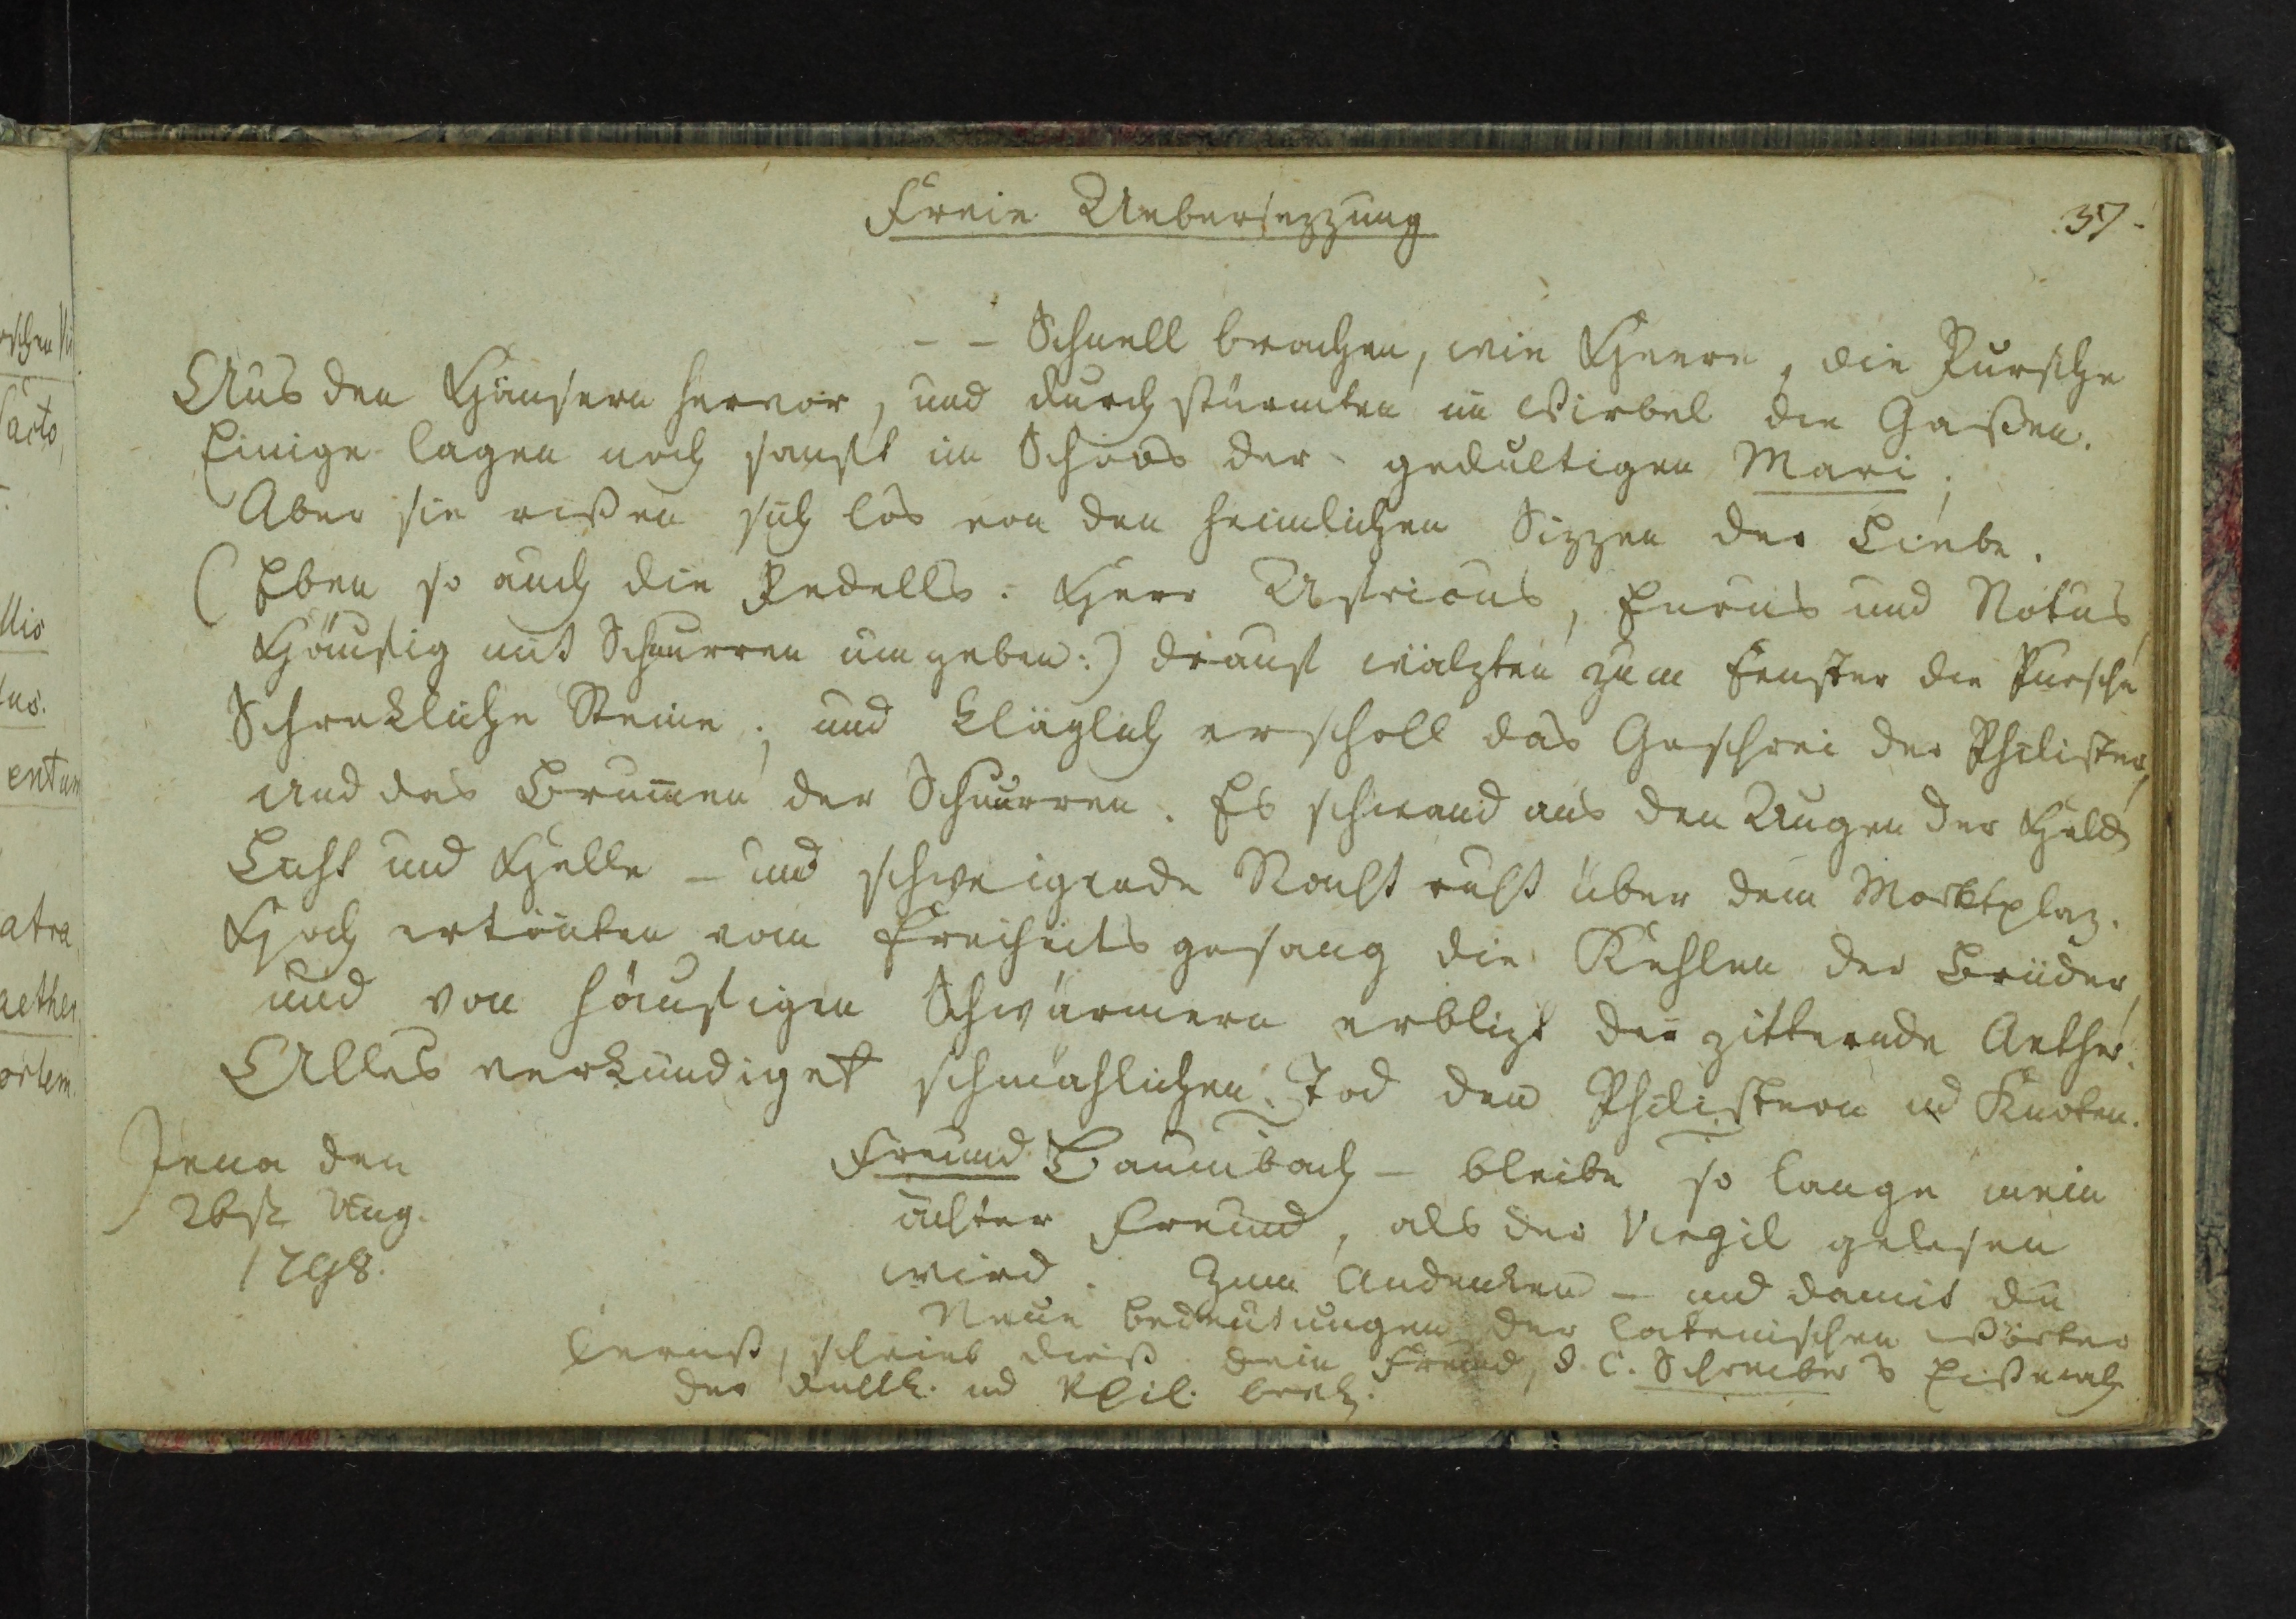 Freie Uebersezzung
37.
– – Schnell brachen, wie Heere, die Pursche
Aus den Häusern hervor, und durchstürmten im Wirbel die Gaßen.
Einige lagen noch sanft im Schoos der gedultigen Mari;
Aber sie rißen sich los von den heimlichen Sizzen der Liebe.
(Eben so auch die Pedells: Herr Africus, Eurus und Notus,
Häufig mit Schnurren umgeben:) drauf wälzten zum Fenster die Pursche
Schrekliche Steine; und kläglich erscholl das Geschrei der Philister,
und das Brummen der Schnurren. Es schwand aus den Augen der
Licht und Helle – und schweigende Nacht ruht über dem Marktplaz.
Hoch ertönten vom Freiheitsgesang die Kehlen der Brüder,
und von häufigen Schwärmern erblizt der zitternde Aether.
Alles verkündiget schmählichen Tod den Philistern und Knoten.
Freund Baumbach – bleibe so lange mein
ächter Freund, als der Virgil gelesen
wird. Zum Andenken – und damit du
Neue Bedeutungen der lateinischen Wörter
lernst, schrieb dieß dein Freund, Schreiber
der und Phil.
Jena den
26st. Aug.
1798.
acto,
llis
tus.
entum
atra
aether
ortem.